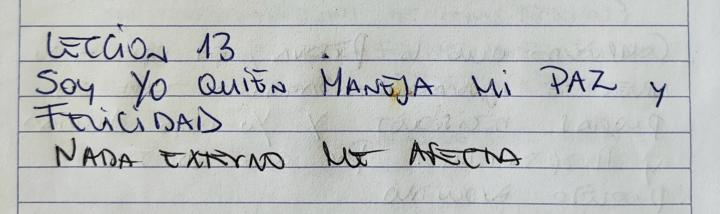 LECCION 13
SOY YO QUIÉN MANEJA MI PAZ Y
FELICIDAD
NADA EXTERNO ME AFECTA